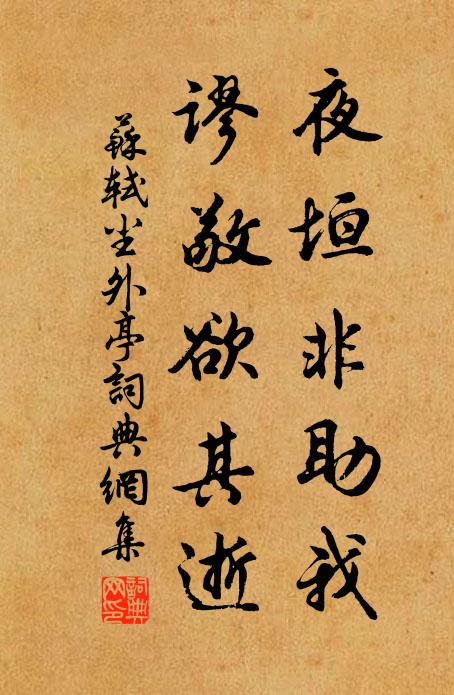 夜垣非助我
謬敬欲其逝
蘇軾尘外亭詞典網集
詞典网印